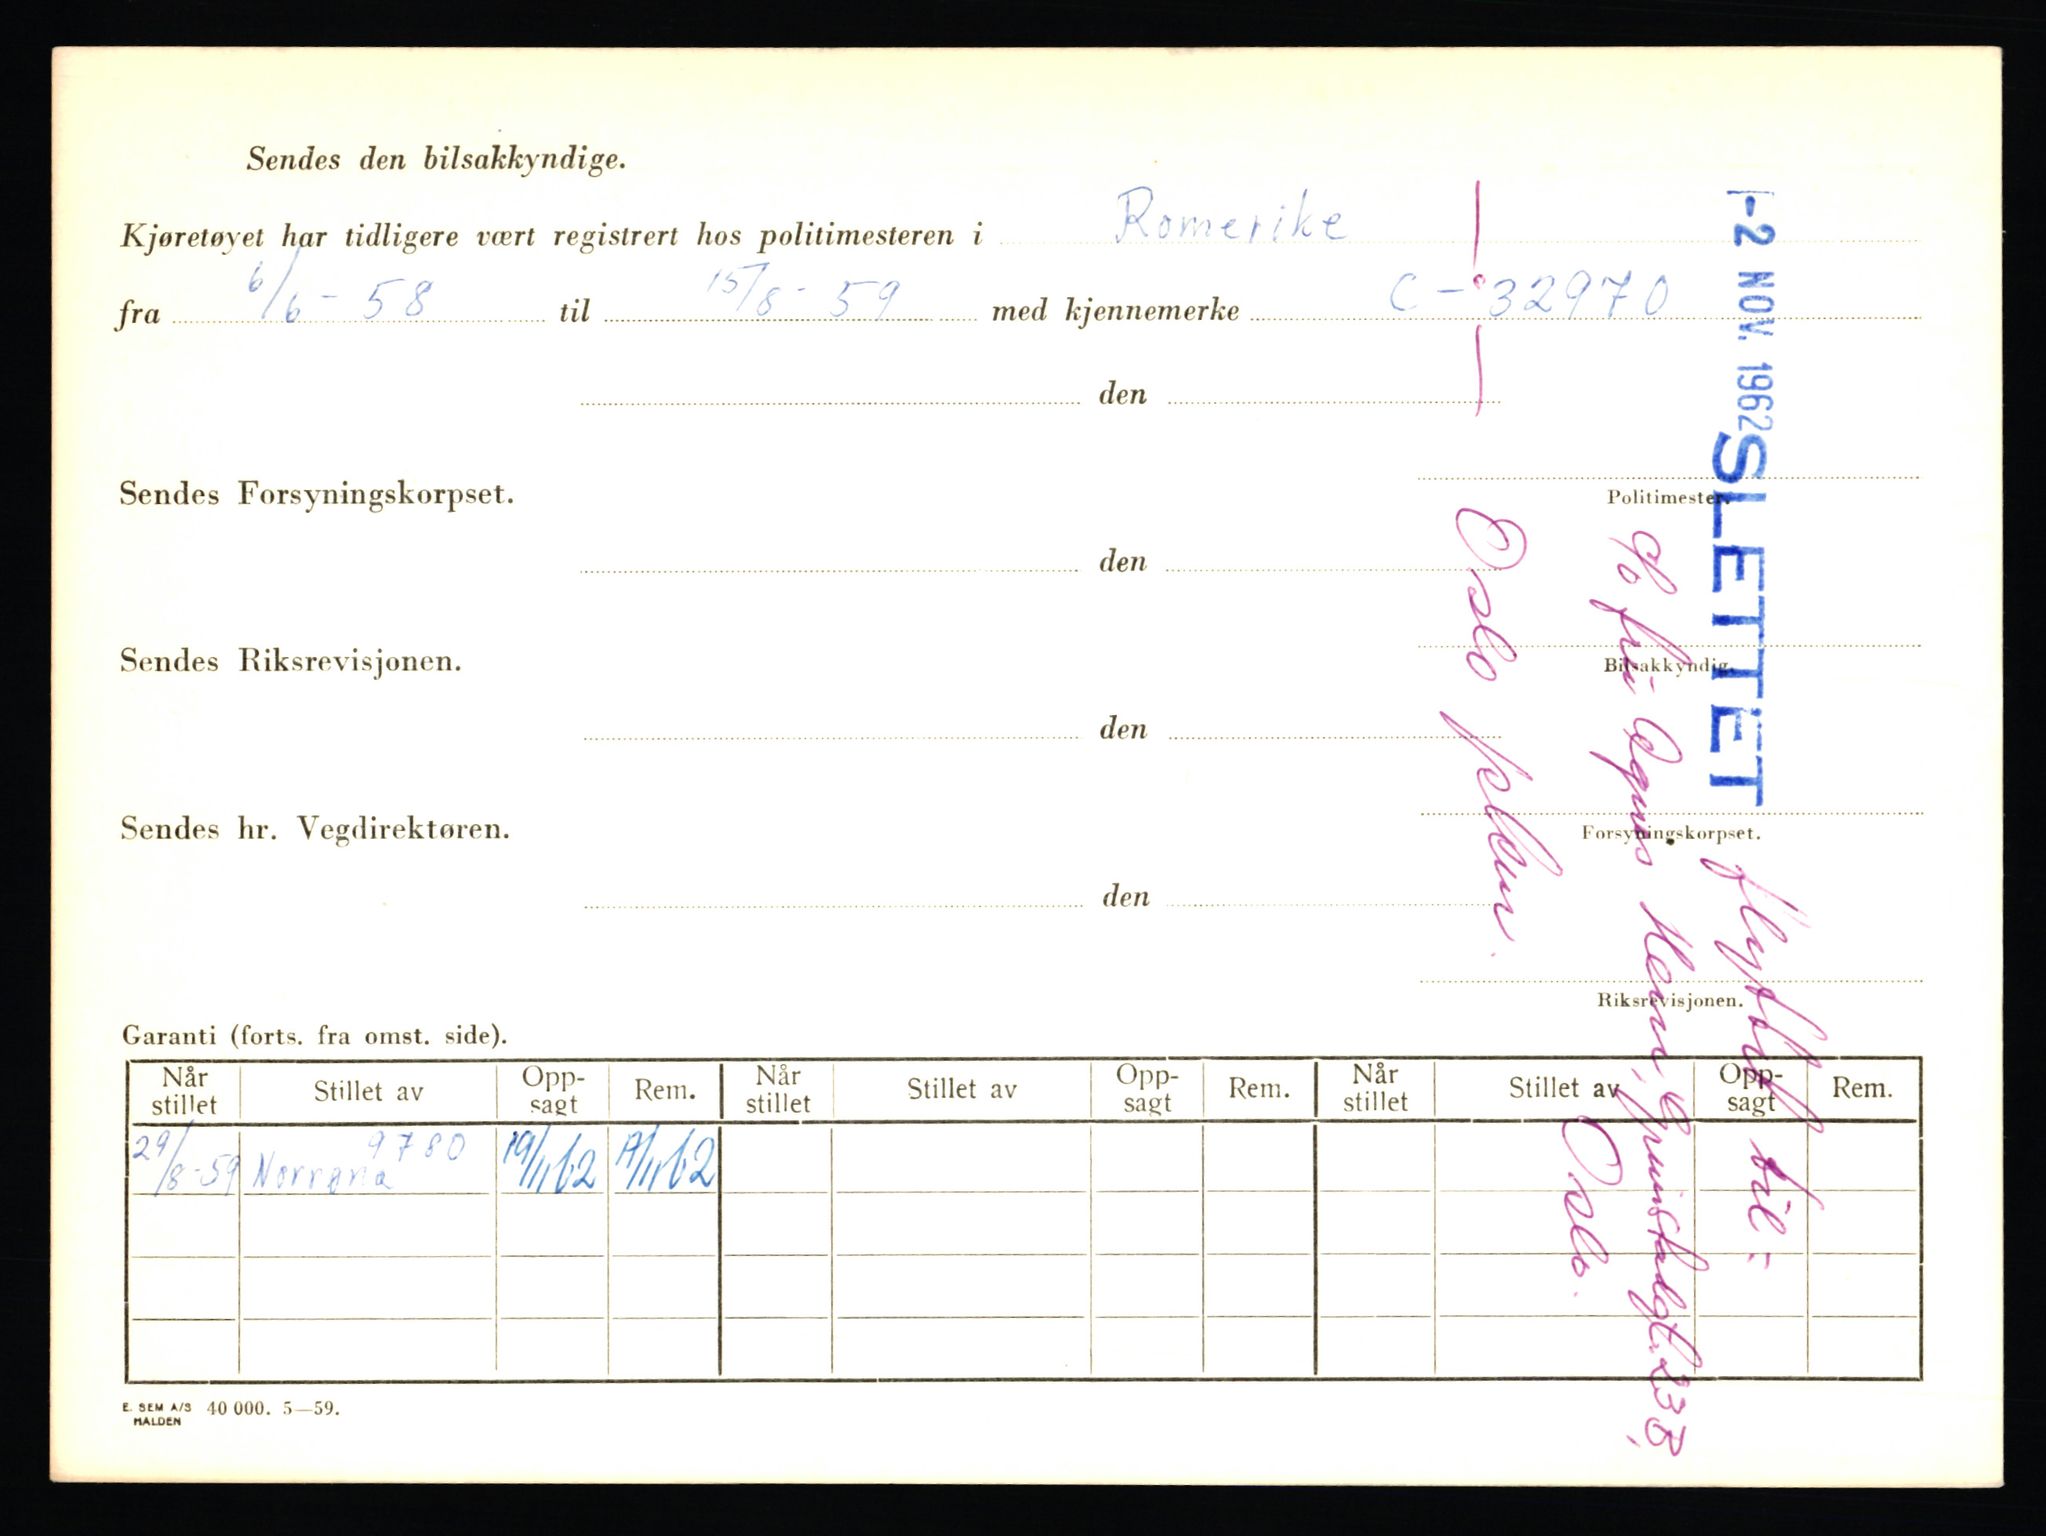 Sendes den bilsakkyndige.
Kjøretøyet har tidligere vært registrert hos politimesteren i Romerike
fra 6/6-58 til 15/8-59 med kjennemerke C-32970
den
Politimester.
Sendes Forsyningskorpset.
den
Bilsakkyndig.
Sendes Riksrevisjonen.
den
Forsyningskorpset.
Sendes hr. Vegdirektøren.
den
Riksrevisjonen.
-2 NOV. 1962 SLETTET
flyttet til:
Oslo.
Oslo
Garanti (forts. fra omst. side).
Når stillet Stillet av Opp-sagt Rem. Når stillet Stillet av Opp-sagt Rem. Når stillet Stillet av Opp-sagt Rem.
29/8-59 Norrøna 9780 19/11 62
E. SEM A/S HALDEN 40 000. 5—59.